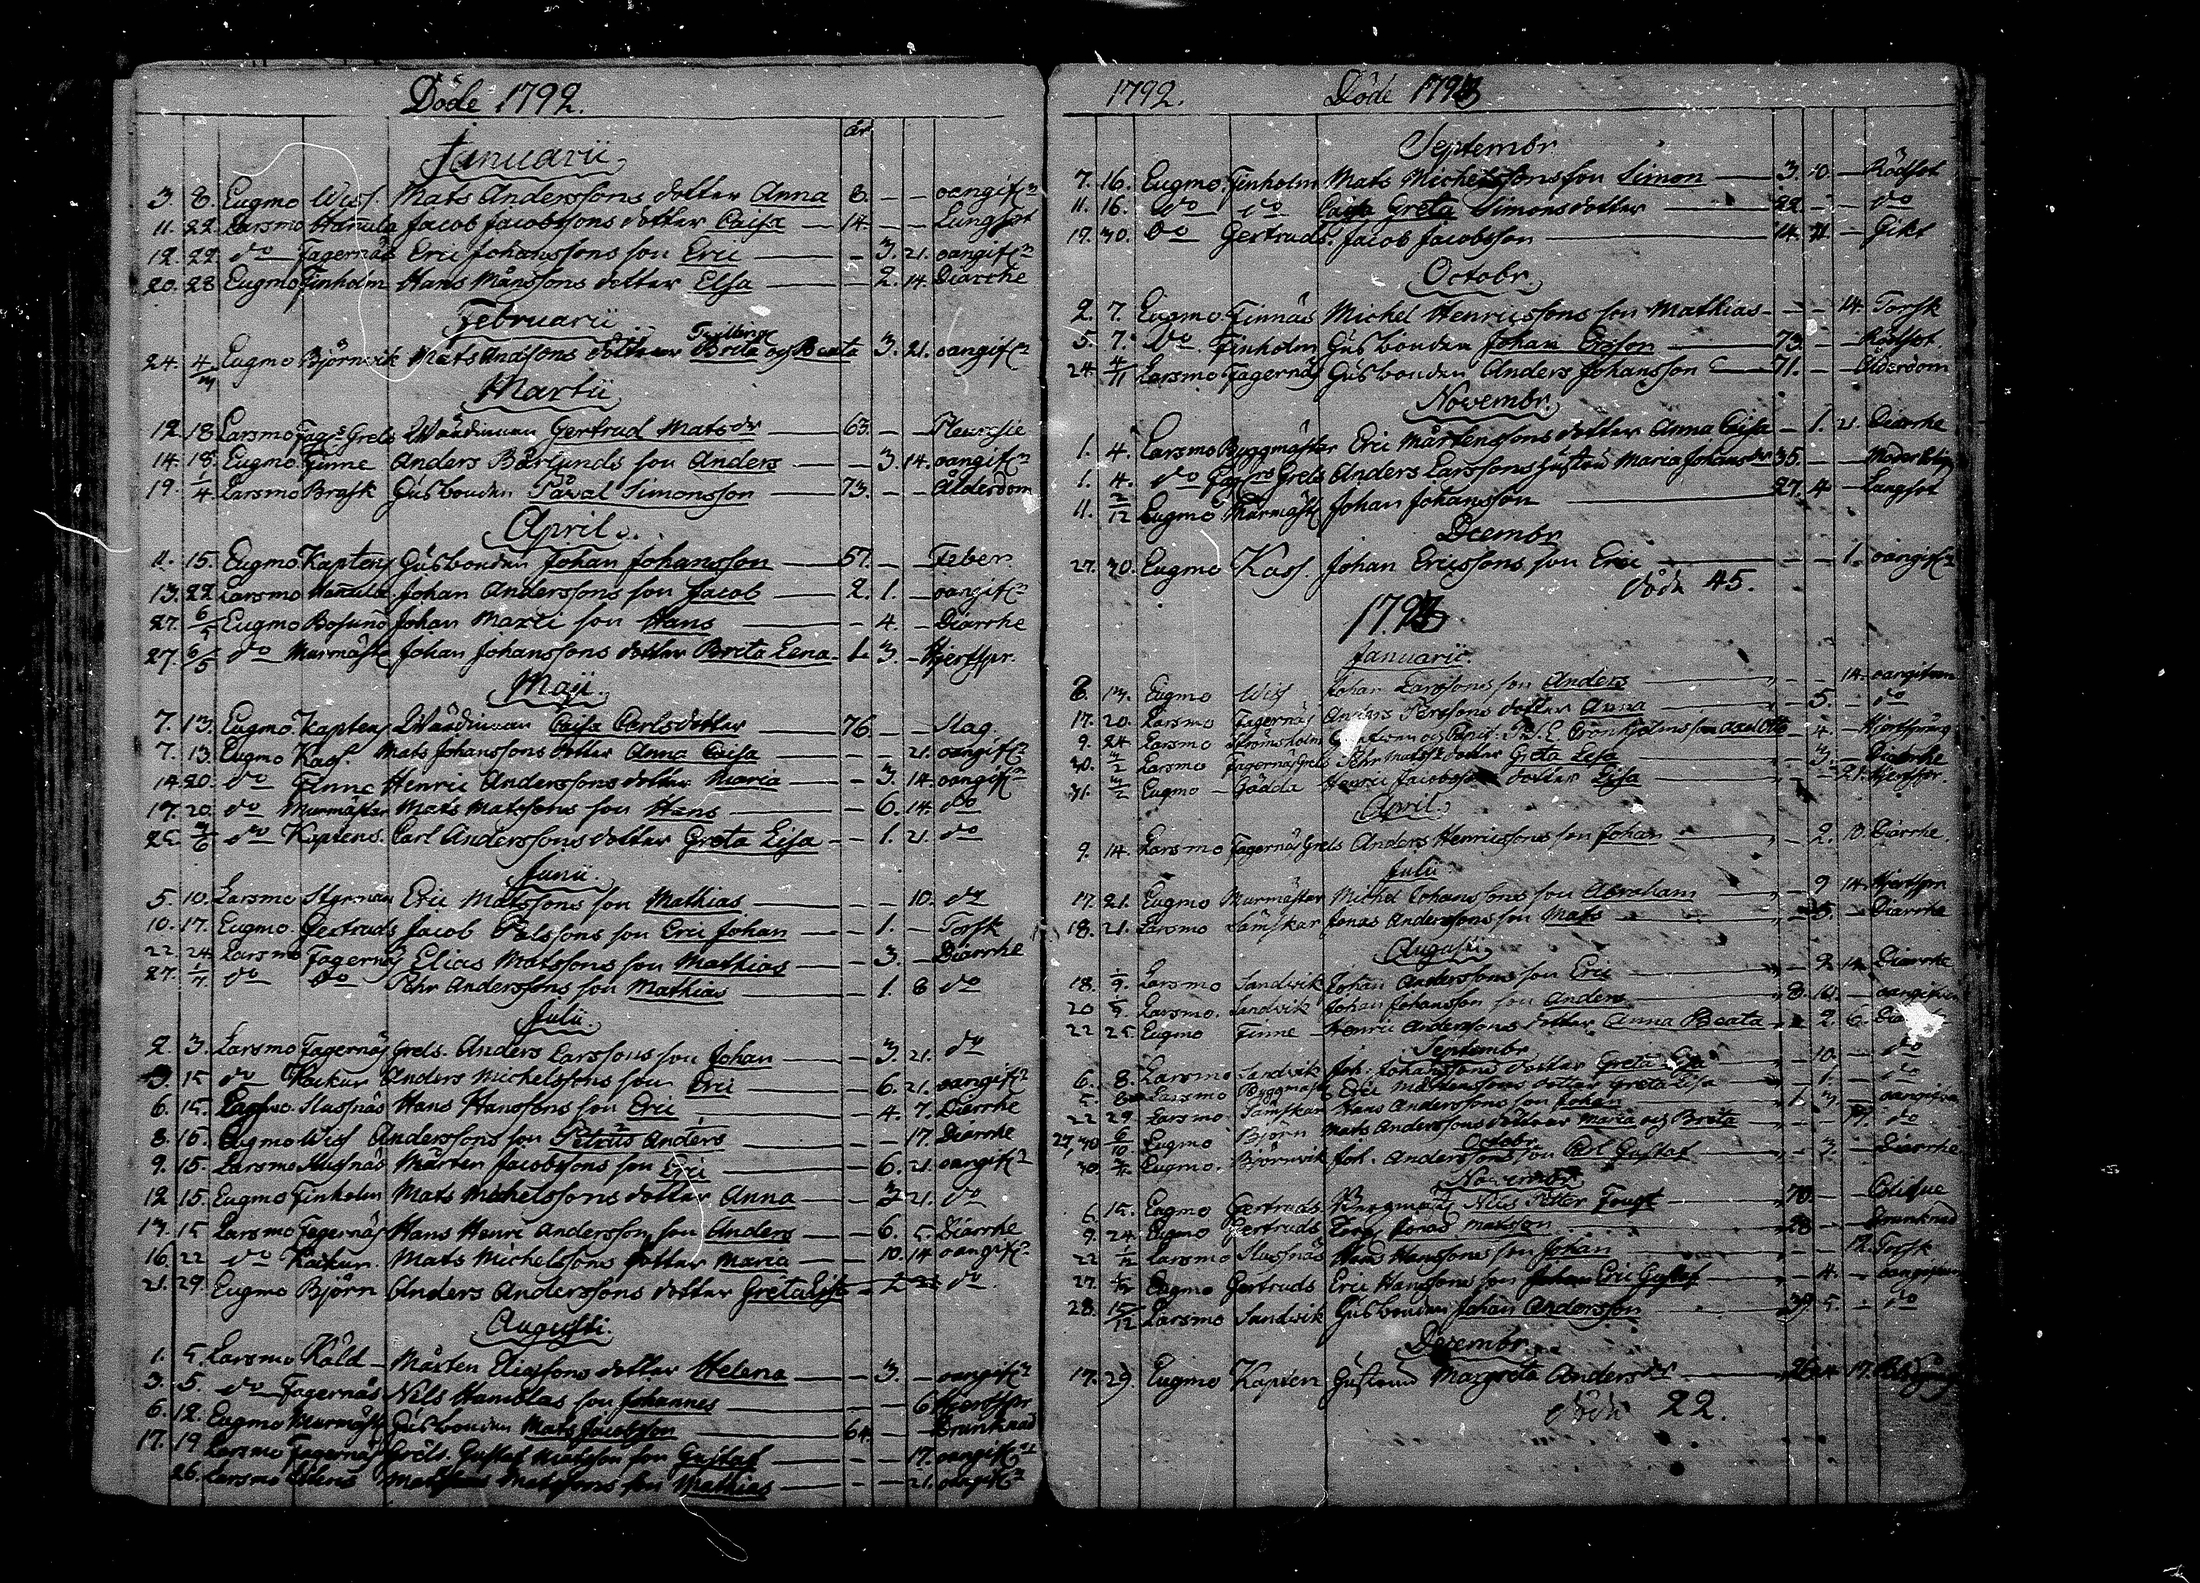 Döde 1792.
år
Januarii
3. 8. Eugmo Wiss. Mats Anderssons dotter Anna 8. — — oangifn
11. 22. Larsmo Hannula Jacob Jacobssons dotter Caisa — 14. — — Lungsot
12. 22. do Fagernäs Eric Johanssons son Eric — — 3. 21. oangifn
20. 28 Eugmo Finholm Hans Månssons dotter Elsa — — 2. 14. Diarrhe
Februarii
Tvillingr
24. 4/3 Eugmo Björnvik Mats Andssons dotterr Brita och Beata 3. 21. oangifn
Martii
12. 18. Larsmo Fags Grels Wärdinnan Gertrud Matsdr — 63. — — Pleuresie
14. 18. Eugmo Finne Anders Bärlunds son Anders — — 3. 14. oangifn
19. 1/4 Larsmo Brask Gusbonden Påval Simonsson — 73. — — Ålderdom
April.
11. 15. Eugmo Kaptens Gusbonden Johan Johansson — 57. — — Feber
13. 22. Larsmo Hannula Johan Anderssons son Jacob — 2. 1. — oangifn
27. 6/5 Eugmo Bosund Johan son Hans — — 4. — Diarrhe
27. 6/5 do Murmäst Johan Johanssons dotter Brita Lena 1. 3. — Hjertspr.
Maji.
7. 13. Eugmo Kaptens Wärdinnan Caisa Carlsdotter — 76. — — Slag.
7. 13. Eugmo Kass. Mats Johanssons dotter Anna Caisa — — — 21. oangifn
14. 20. do Finne Henric Anderssons dotter Maria — — 3. 14. oangifn
17. 20. do Murmäster Mats Matssons son Hans — — 6. 14. do
25. 3/6 do Kaptens. Carl Anderssons dotter Greta Lisa — — 1. 21. do
Junii.
5. 10. Larsmo Styrman Eric Matssons son Mathias — — — 10. do
10. 17. Eugmo Gertruds Jacob Pålssons son Eric Johan — — 1. — Torsk
22. 24. Larsmo Fagernäs Elias Matssons son Mathias — — 3. — Diarrhe
27. 1/7 do do Pehr Anderssons son Mathias — — 1. 8 do
Julii.
2. 3. Larsmo Fagernäs Grels. Anders Larssons son Johan — — 3. 21. do
3. 15 do Kackur Anders Michelssons son Eric — — 6. 21. oangifn
6. 15. Larsmo. Slussnäs Hans Hanssons son Eric — — 4. 7. Diarrhe
8. 15. Eugmo Wiss Anderssons son Petrus Anders — — — 17. Diarrhe
9. 15. Larsmo Slussnäs Mårten Jacobssons son Eric — — 6. 21. oangifn
12 15. Eugmo Finholm Mats Michelssons dotter Anna — — 3 21. do
13. 15 Larsmo Fagernäs Hans Henri Andersson son Anders — — 6. 5. Diarrhe
16. 22 do Kackur. Mats Michelssons dotter Maria — — 10. 14 oangifn
21. 29. Eugmo Björn Anders Anderssons dotter Greta Lisa — 2 22 do
Augusti.
1. 5. Larsmo Käld — Mårten Eliassons dotter Helena — — 3. — oangifn
3. 5. do Fagernäs Nils Hanulas son Johannes — — — 6 Hjertspr
6. 12. Eugmo Murmäst Gusbonden Mats Jacobsson — 64. — — Bråndknad
17. 19. Larsmo Fagernäs Gustaf Matsson son Gustaf — — — 17. oangifn
26. Larsmo Matssons son Mathias — — — 21. oangifn
1792. Döde 1793
Septembr.
7. 16. Eugmo Finholm Mats Michelssons son Simon — 3. 10. — Rödsot
11. 16. do do Caisa Greta Simonsdotter — 22. — — do
19. 30. do Gertruds. Jacob Jacobsson — 14. 11 — Gikt
Octobr.
2. 7. Eugmo Finnäs Michel Henricssons son Mathias — — — 14. Torsk
5. 7. do. Finholm Gusbonden Johan Ersson — 73. — — Rödsot
24. 4/11 Larsmo Fagernäs Gusbonden Anders Johansson — 71. — — Ålderdom
Novembr.
1. 4. Larsmo Byggmäster Eric Mårtenssons dotter Anna Caisa — 1. 21. Diarrhe
1. 4. do Fagrs Grels Anders Larssons hustru Maria Johansdr 35. — —
11. 2/12 Eugmo Murmäst Johan Johansson — 27. 4 — Lungsot
Dcembr
27. 30. Eugmo Kass. Johan Ericssons son Eric — — — 1. oangifn
döde 45.
1793
Januarii.
8. 13. Eugmo Wiss Johan Larssons son Anders — — — 14. oangifven
17. 20. Larsmo Fagernäs Anders Perssons dotter Anna — — 5. — do
9. 24. Larsmo Strömsholm Cronholms son Axel Otto — 4. — Hjertspräng
30. 3/2 Larsmo Fagernäs Grels Pehr Matss dotter Greta Lisa — — 3. — Diarrhe
31. 3/2 Eugmo — Gädda Henric Jacobsson dotter Lisa — — — 21. Hjertspr.
April.
9. 14. Larsmo Fagernäs Grels Anders Henricssons son Johan — — 2. 10. Diarrhe
Julii
17. 21. Eugmo Murmäster Michel Johanssons son Abraham — — 9 14. Hjertspn
18. 21. Larsmo Lämskar Jonas Anderssons son Mats — — — Diarrhe
Augusti.
18. 1/9. Larsmo Sandvik Johan Anderssons son Eric — — 2 14. Diarrhe
20 1/9. Larsmo. Sandvik Johan Johansson son Anders — 8. 10. — oangifven
22 25. Eugmo Finne — Henric Anderssons dotter Anna Beata — 2. 6. Dia
Septembr
6. 8. Larsmo Sandvik Joh. Johanssons dotter Greta Lisa — — 10. — do
5. 8. Larsmo Byggmäst Eric Mårtenssons dotter Greta Lisa — — 1. — do
22 29. Larsmo. Lämskar Hans Anderssons son Johan — 1. 3. — oangifven
27, 30. 6/10 Eugmo Björn Mats Anderssons döttrar Maria och Brita — — — 14. do
Octobr
30. Eugmo. Björnvik Joh. Anderssons son Carl Gustaf — — 3. — Diarrhe
Novembr.
6. 15. Eugmo Gertruds Bergmäst Nils Petter Fougt — 70. — — Colique
9. 24. Eugmo Gertruds Torp Jonas Matsson — 28 — — Drunknad
22 1/12 Larsmo Slussnäs Hans Hanssons son Johan — — — 12. Torsk
27. 1/12 Eugmo Gertruds Eric Hanssons son Johan Eric Gustaf — — 4. — oangifven
28. 15/12 Larsmo Sandvik Gusbonden Johan Andersson — 39. 5. — do
Decembr.
17. 29. Eugmo Kapten Gustruu Margreta Andersdr — 17.
döde 22.